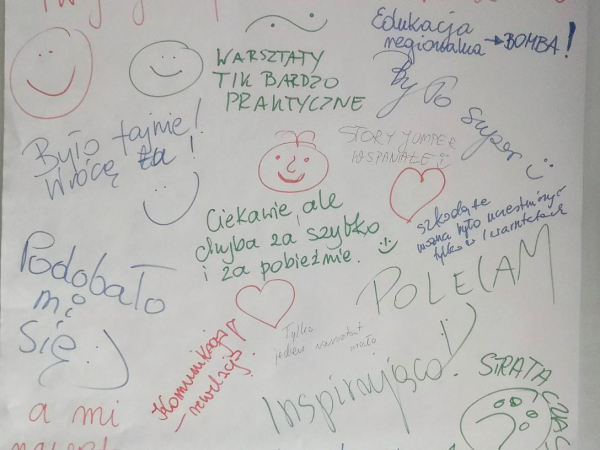 Edukacja
regionalna → BOMBA!
WARSZTATY
TIK BARDZO
PRAKTYCZNE
By To super :)
Było fajnie!
Wrócę tu!
STORY JUMPER
WSPANIAŁE!
Ciekawie, ale
chyba za szybko
i za pobieżnie. :)
szkoda, że
można było uczestniczyć
tylko w 1 warsztatach
Podobało
mi
się :)
POLECAM
Komunikacja
– rewelacja!
Tylko
jeden warsztat
mało
Inspirująco!
STRATA CZASU
a mi